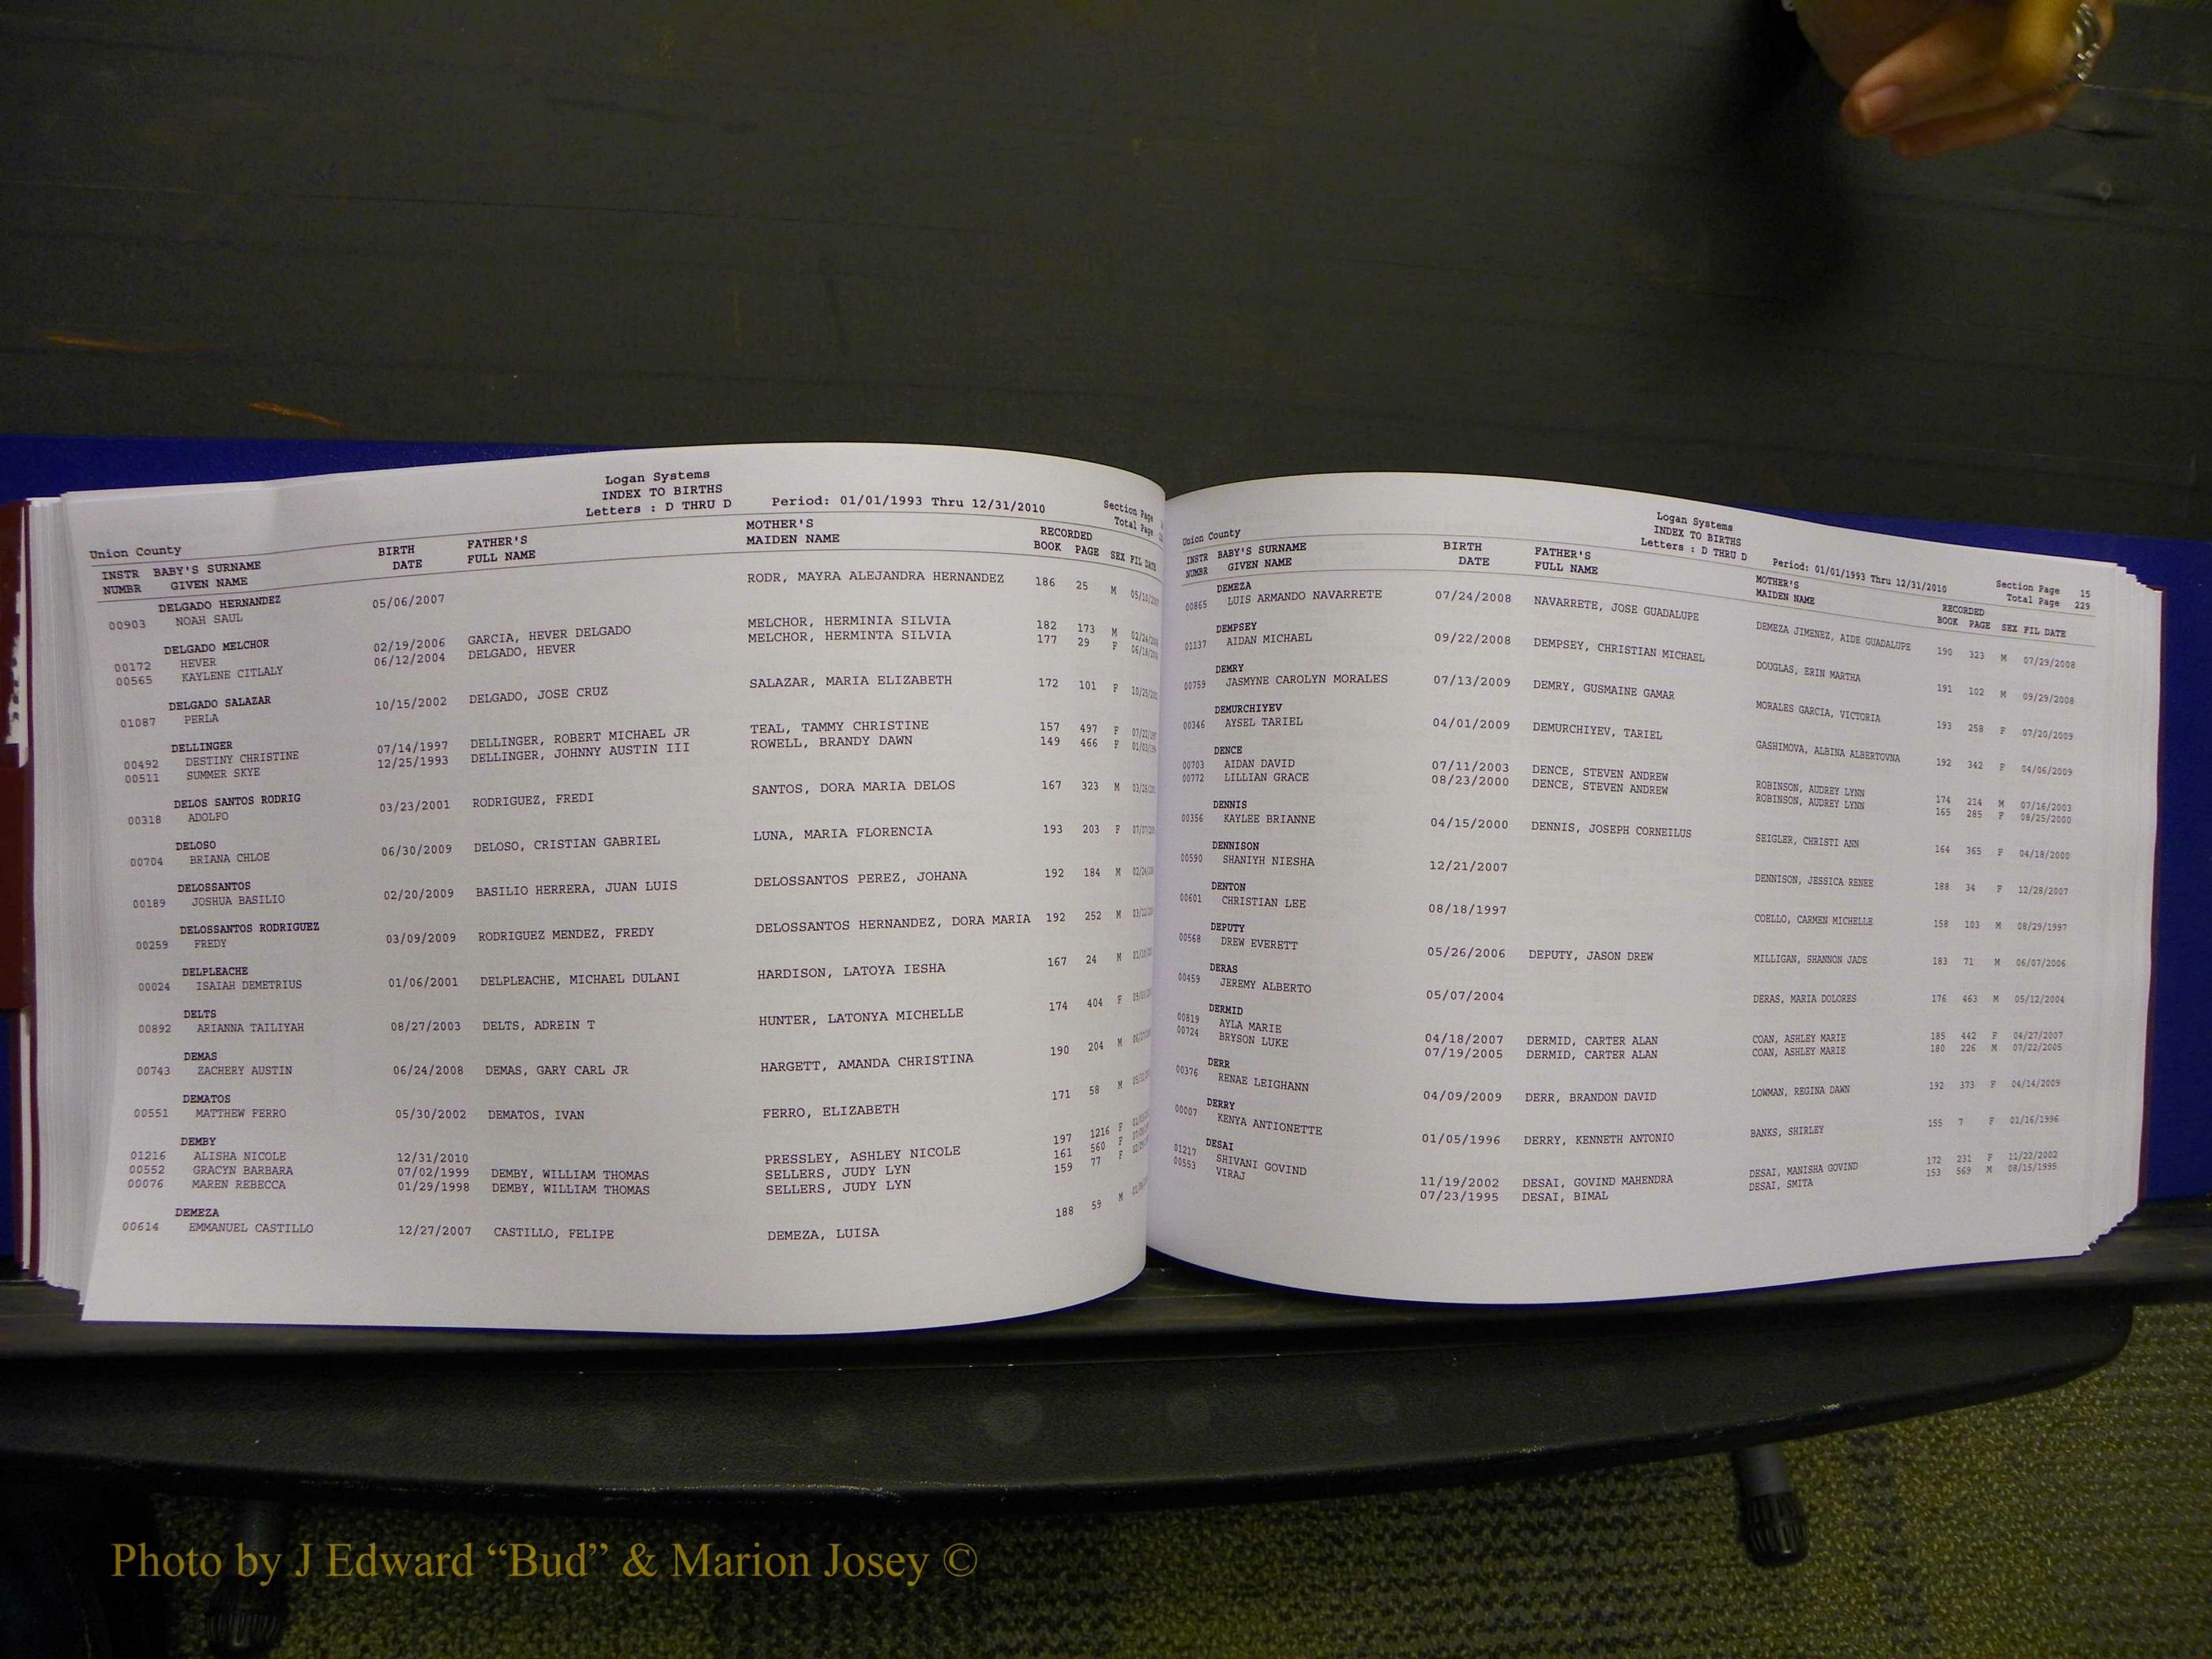 Logan Systems
INDEX TO BIRTHS
Letters : D THRU D Period: 01/01/1993 Thru 12/31/2010 Section Page
Total Page
Union County
INSTR BABY'S SURNAME BIRTH FATHER'S MOTHER'S RECORDED
NUMBR GIVEN NAME DATE FULL NAME MAIDEN NAME BOOK PAGE SEX FIL DATE
DELGADO HERNANDEZ
00903 NOAH SAUL 05/06/2007 RODR, MAYRA ALEJANDRA HERNANDEZ 186 25 M
DELGADO MELCHOR
00172 HEVER 02/19/2006 GARCIA, HEVER DELGADO MELCHOR, HERMINIA SILVIA 182 173 M
00565 KAYLENE CITLALY 06/12/2004 DELGADO, HEVER MELCHOR, HERMINTA SILVIA 177 29 F
DELGADO SALAZAR
01087 PERLA 10/15/2002 DELGADO, JOSE CRUZ SALAZAR, MARIA ELIZABETH 172 101 F
DELLINGER
00492 DESTINY CHRISTINE 07/14/1997 DELLINGER, ROBERT MICHAEL JR TEAL, TAMMY CHRISTINE 157 497 F
00511 SUMMER SKYE 12/25/1993 DELLINGER, JOHNNY AUSTIN III ROWELL, BRANDY DAWN 149 466 F
DELOS SANTOS RODRIG
00318 ADOLFO 03/23/2001 RODRIGUEZ, FREDI SANTOS, DORA MARIA DELOS 167 323 M
DELOSO
00704 BRIANA CHLOE 06/30/2009 DELOSO, CRISTIAN GABRIEL LUNA, MARIA FLORENCIA 193 203 F
DELOSSANTOS
00189 JOSHUA BASILIO 02/20/2009 BASILIO HERRERA, JUAN LUIS DELOSSANTOS PEREZ, JOHANA 192 184 M
DELOSSANTOS RODRIGUEZ
00259 FREDY 03/09/2009 RODRIGUEZ MENDEZ, FREDY DELOSSANTOS HERNANDEZ, DORA MARIA 192 252 M
DELPLEACHE
00024 ISAIAH DEMETRIUS 01/06/2001 DELPLEACHE, MICHAEL DULANI HARDISON, LATOYA IESHA 167 24 M
DELTS
00892 ARIANNA TAILIYAH 08/27/2003 DELTS, ADREIN T HUNTER, LATONYA MICHELLE 174 404 F
DEMAS
00743 ZACHERY AUSTIN 06/24/2008 DEMAS, GARY CARL JR HARGETT, AMANDA CHRISTINA 190 204 M
DEMATOS
00551 MATTHEW FERRO 05/30/2002 DEMATOS, IVAN FERRO, ELIZABETH 171 58 M
DEMBY
01216 ALISHA NICOLE 12/31/2010 PRESSLEY, ASHLEY NICOLE 197 1216 F
00552 GRACYN BARBARA 07/02/1999 DEMBY, WILLIAM THOMAS SELLERS, JUDY LYN 161 560 F
00076 MAREN REBECCA 01/29/1998 DEMBY, WILLIAM THOMAS SELLERS, JUDY LYN 159 77 F
DEMEZA
00614 EMMANUEL CASTILLO 12/27/2007 CASTILLO, FELIPE DEMEZA, LUISA 188 59 M
Logan Systems
INDEX TO BIRTHS
Letters : D THRU D Period: 01/01/1993 Thru 12/31/2010 Section Page 15
Total Page 229
Union County
INSTR BABY'S SURNAME BIRTH FATHER'S MOTHER'S RECORDED
NUMBR GIVEN NAME DATE FULL NAME MAIDEN NAME BOOK PAGE SEX FIL DATE
DEMEZA
00865 LUIS ARMANDO NAVARRETE 07/24/2008 NAVARRETE, JOSE GUADALUPE DEMEZA JIMENEZ, AIDE GUADALUPE 190 323 M 07/29/2008
DEMPSEY
01137 AIDAN MICHAEL 09/22/2008 DEMPSEY, CHRISTIAN MICHAEL DOUGLAS, ERIN MARTHA 191 102 M 09/29/2008
DEMRY
00759 JASMYNE CAROLYN MORALES 07/13/2009 DEMRY, GUSMAINE GAMAR MORALES GARCIA, VICTORIA 193 258 F 07/20/2009
DEMURCHIYEV
00346 AYSEL TARIEL 04/01/2009 DEMURCHIYEV, TARIEL GASHIMOVA, ALBINA ALBERTOVNA 192 342 F 04/06/2009
DENCE
00703 AIDAN DAVID 07/11/2003 DENCE, STEVEN ANDREW ROBINSON, AUDREY LYNN 174 214 M 07/16/2003
00772 LILLIAN GRACE 08/23/2000 DENCE, STEVEN ANDREW ROBINSON, AUDREY LYNN 165 285 F 08/25/2000
DENNIS
00356 KAYLEE BRIANNE 04/15/2000 DENNIS, JOSEPH CORNEILUS SEIGLER, CHRISTI ANN 164 365 F 04/18/2000
DENNISON
00590 SHANIYH NIESHA 12/21/2007 DENNISON, JESSICA RENEE 188 34 F 12/28/2007
DENTON
00601 CHRISTIAN LEE 08/18/1997 COELLO, CARMEN MICHELLE 158 103 M 08/29/1997
DEPUTY
00568 DREW EVERETT 05/26/2006 DEPUTY, JASON DREW MILLIGAN, SHANNON JADE 183 71 M 06/07/2006
DERAS
00459 JEREMY ALBERTO 05/07/2004 DERAS, MARIA DOLORES 176 463 M 05/12/2004
DERMID
00819 AYLA MARIE 04/18/2007 DERMID, CARTER ALAN COAN, ASHLEY MARIE 185 442 F 04/27/2007
00724 BRYSON LUKE 07/19/2005 DERMID, CARTER ALAN COAN, ASHLEY MARIE 180 226 M 07/22/2005
DERR
00376 RENAE LEIGHANN 04/09/2009 DERR, BRANDON DAVID LOWMAN, REGINA DAWN 192 373 F 04/14/2009
DERRY
00007 KENYA ANTIONETTE 01/05/1996 DERRY, KENNETH ANTONIO BANKS, SHIRLEY 155 7 F 01/16/1996
DESAI
01217 SHIVANI GOVIND 11/19/2002 DESAI, GOVIND MAHENDRA DESAI, MANISHA GOVIND 172 231 F 11/22/2002
00553 VIRAJ 07/23/1995 DESAI, BIMAL DESAI, SMITA 153 569 M 08/15/1995
Photo by J Edward “Bud” & Marion Josey ©